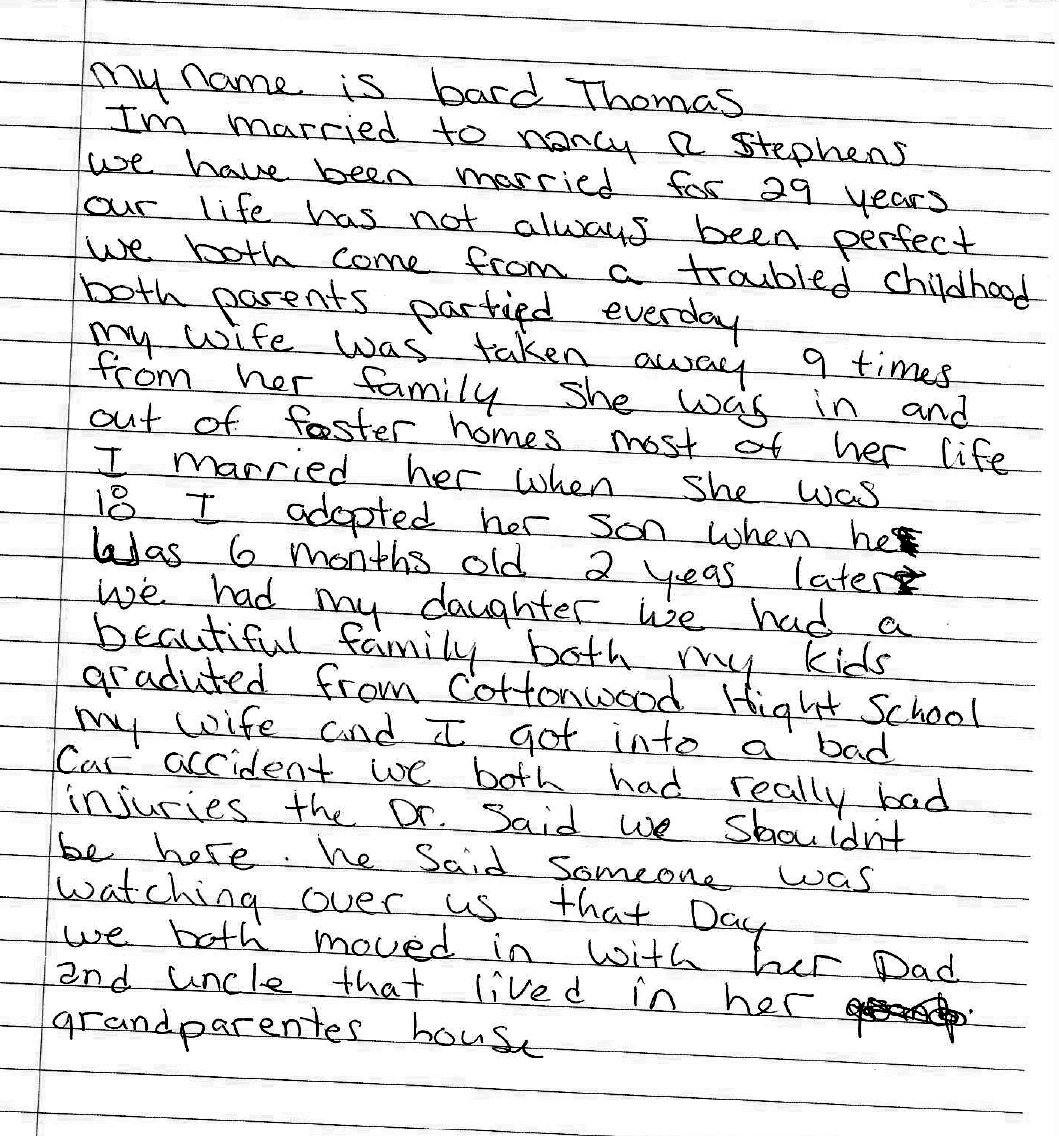 my name is bard Thomas
Im married to nancy R Stephens
we have been married for 29 years
our life has not always been perfect
we both come from a troubled childhood
both parents partied everday
my wife was taken away 9 times
from her family She was in and
out of foster homes most of her life
I married her when She was
18 I adopted her son when he
was 6 months old 2 yeas later
we had my daughter we had a
beautiful family both my kids
graduted from Cottonwood Hight School
my wife and I got into a bad
Car accident we both had really bad
injuries the Dr. Said we Shouldn't
be here. he Said Someone was
watching over us that Day
we both moved in with her Dad
and uncle that lived in her
grandparentes house